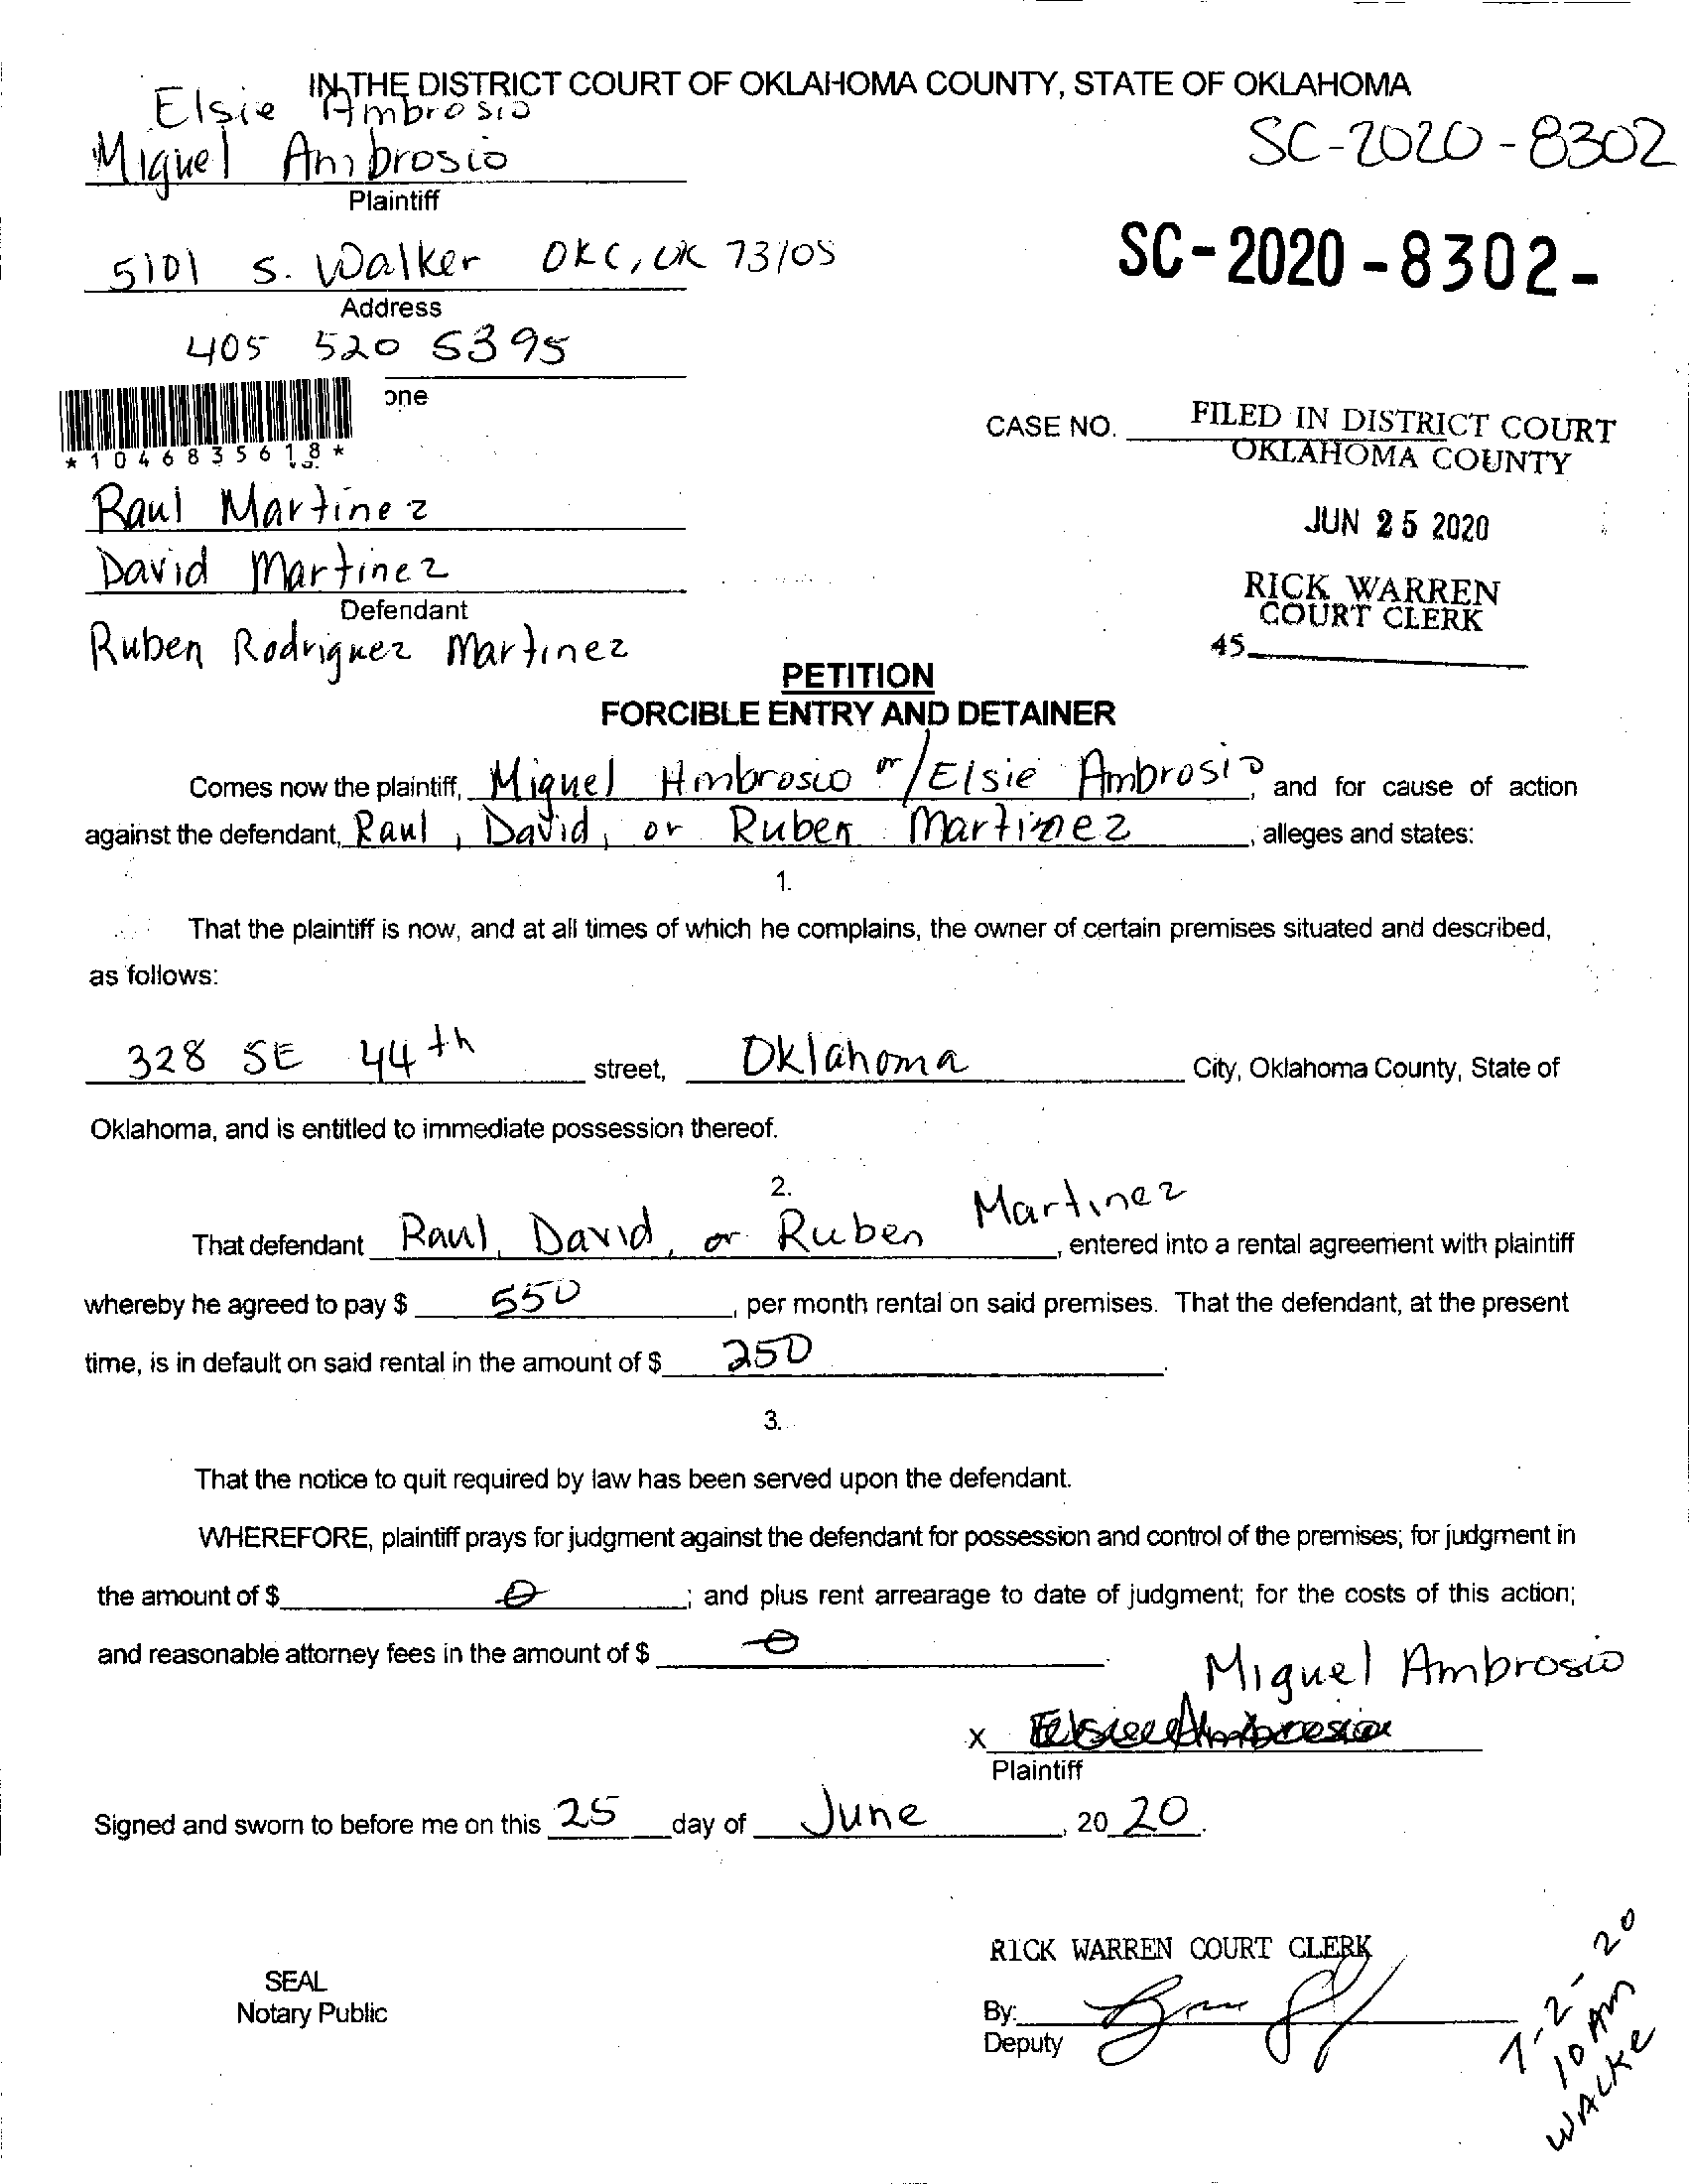 IN THE DISTRICT COURT OF OKLAHOMA COUNTY, STATE OF OKLAHOMA
Elsie Ambrosio
Miguel Ambrosio
Plaintiff
SC-2020-8302
5101 S. Walker OKC, OK 73105
Address
SC-2020-8302-
405 520 5395
one
*1046835618*
CASE NO.
FILED IN DISTRICT COURT
OKLAHOMA COUNTY
Raul Martinez
JUN 25 2020
David Martinez
Defendant
RICK WARREN
COURT CLERK
Ruben Rodriguez Martinez
45
PETITION
FORCIBLE ENTRY AND DETAINER
Comes now the plaintiff, Miguel Ambrosio or/Elsie Ambrosio, and for cause of action
against the defendant, Raul, David, or Ruben Martinez, alleges and states:
1.
That the plaintiff is now, and at all times of which he complains, the owner of certain premises situated and described,
as follows:
328 SE 44th street, Oklahoma City, Oklahoma County, State of
Oklahoma, and is entitled to immediate possession thereof.
2.
That defendant Raul, David, or Ruben Martinez, entered into a rental agreement with plaintiff
whereby he agreed to pay $ 550, per month rental on said premises. That the defendant, at the present
time, is in default on said rental in the amount of $ 250.
3.
That the notice to quit required by law has been served upon the defendant.
WHEREFORE, plaintiff prays for judgment against the defendant for possession and control of the premises; for judgment in
the amount of $ 0; and plus rent arrearage to date of judgment; for the costs of this action;
and reasonable attorney fees in the amount of $ 0
Miguel Ambrosio
X Elsie Ambrosio
Plaintiff
Signed and sworn to before me on this 25 day of June, 20 20.
RICK WARREN COURT CLERK
SEAL
Notary Public
By:
Deputy
7-2-20
10 AM
WALKE